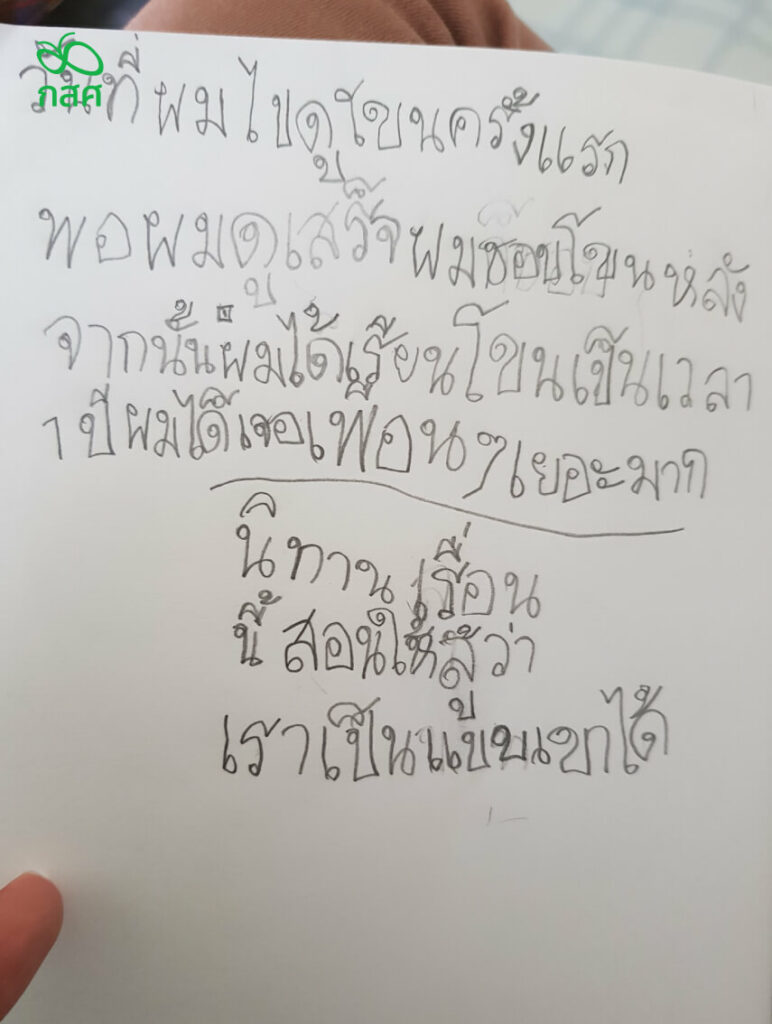 กสศ
วันที่ผมไปดูโขนครั้งแรก
พอผมดูเสร็จผมชอบโขนหลัง
จากนั้นผมได้เรียนโขนเป็นเวลา
1 ปีผมได้เจอเพื่อนๆเยอะมาก
นิทานเรื่อน
นี้สอนให้รู้ว่า
เราเป็นแบบเขาได้